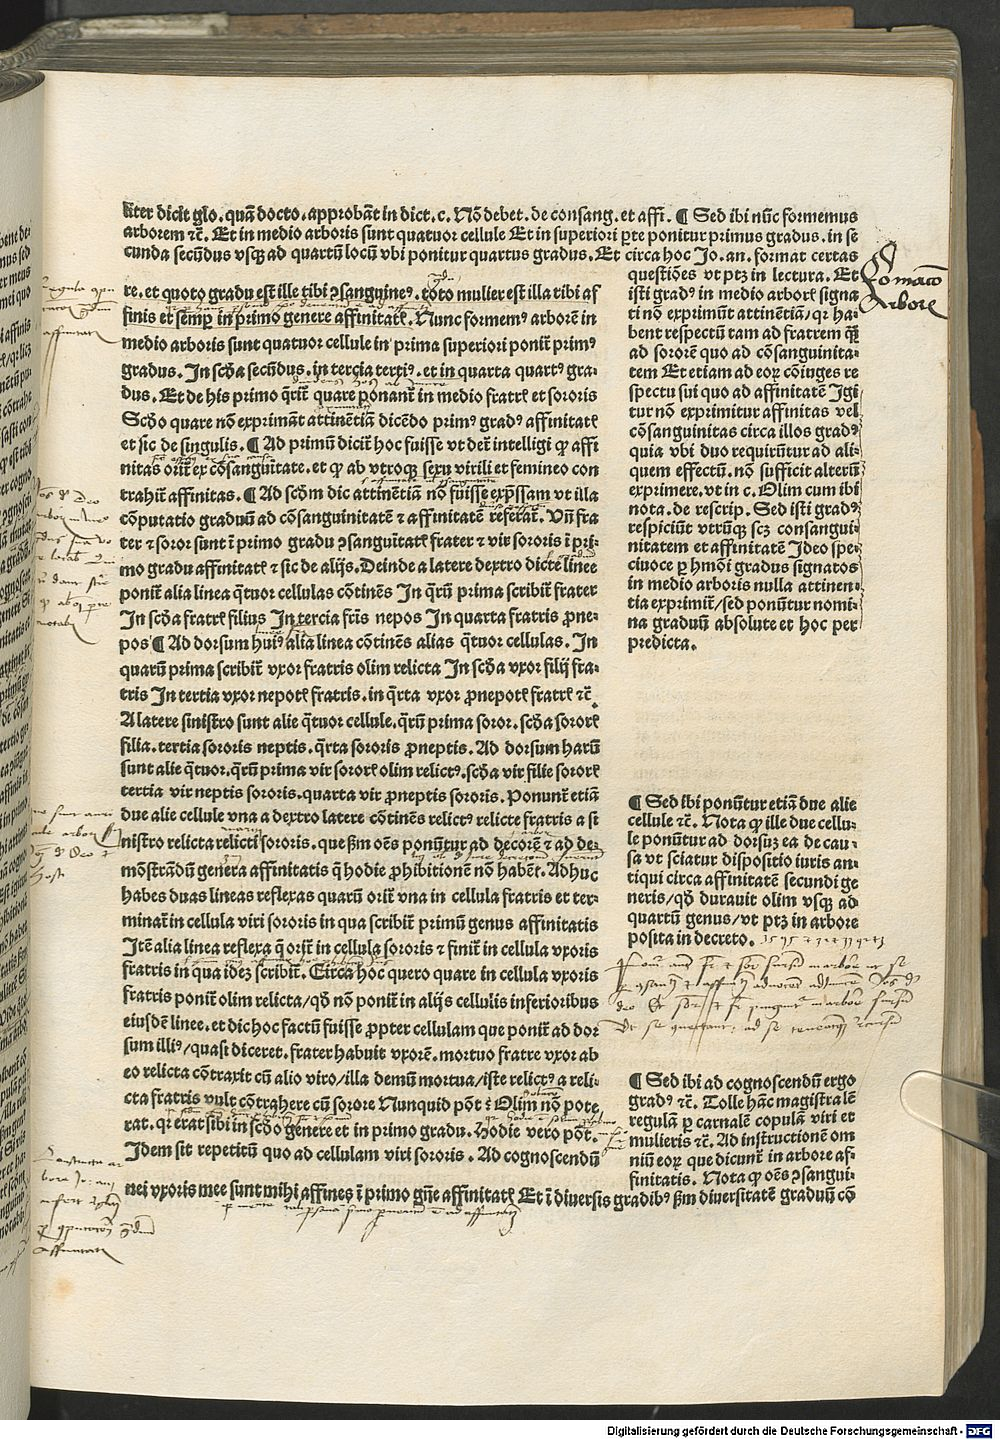 liter dicit glo. quā docto. approbāt in dict. c. Nō debet. de consang. et affi. ¶ Sed ibi nūc formemus
arborem ⁊c̄. Et in medio arboris sunt quatuor cellule Et in superiori ꝑte ponitur primus gradus. in se
cunda secūdus vsqꝫ ad quartū locū vbi ponitur quartus gradus. Et circa hoc Jo. an. format certas
re. et quoto gradu est ille tibi ꝯsanguineꝰ. toto mulier est illa tibi af
finis et semꝑ in primo genere affinitatꝭ. Nunc formemꝰ arborē in
medio arboris sunt quatuor cellule in prima superiori ponit̄ primꝰ
gradus. In scd̄a secūdus. in tercia tertiꝰ. et in quarta quartꝰ gra-
dus. Et de his primo q̄rit̄ quare ponant̄ in medio fratrꝭ et sororis
Scd̄o quare nō exprimāt attinētiā dicēdo primꝰ gradꝰ affinitatꝭ
et sic de singulis. ¶ Ad primū dicit̄ hoc fuisse vt det̄ intelligi ꝙ affi
nitas orit̄ ex cōsanguītate. et ꝙ ab vtroqꝫ sexu virili et femineo con
trahit̄ affinitas. ¶ Ad scd̄m dic attinētiā nō fuisse exp̄ssam vt illa
cōputatio graduū ad cōsanguinitatē ⁊ affinitatē referat̄. Vn̄ fra
ter ⁊ soror sunt ī primo gradu ꝯsanguītatꝭ frater ⁊ vir sororis ī pri-
mo gradu affinitatꝭ ⁊ sic de alijs. Deinde a latere dextro dictꝭ linee
ponit̄ alia linea q̄tuor cellulas cōtinēs In q̄rū prima scribit̄ frater
In scd̄a fratrꝭ filius In tercia fr̄is nepos In quarta fratris ꝓne-
pos ¶ Ad dorsum huiꝰ alia linea cōtinēs alias q̄tuor cellulas. In
quarū prima scribit̄ vxor fratris olim relicta In scd̄a vxor filij fra-
tris In tertia vxor nepotꝭ fratris. in q̄rta vxor ꝓnepotꝭ fratrꝭ ⁊c̄.
A latere sinistro sunt alie q̄tuor cellule. q̄rū prima soror. scd̄a sororꝭ
filia. tertia sororis neptis. q̄rta sororis ꝓneptis. Ad dorsum harū
sunt alie q̄tuor. q̄rū prima vir sororꝭ olim relictꝰ. scd̄a vir filie sororꝭ
tertia vir neptis sororis. quarta vir ꝓneptis sororis. Ponunt̄ etiā
due alie cellule vna a dextro latere cōtinēs relictꝰ relicte fratris a si
nistro relicta relicti sororis. que ẞm oēs ponūtur ad decorē ⁊ ad de-
mōstrādū genera affinitatis q̄ hodie ꝓhibitionē nō habēt. Adhuc
habes duas lineas reflexas quarū orit̄ vna in cellula fratris et ter-
minat̄ in cellula viri sororis in qua scribit̄ primū genus affinitatis
Itē alia linea reflexa q̄ orit̄ in cellula sororis ⁊ finit̄ in cellula vxoris
fratris in qua idez scribit̄. Circa hoc quero quare in cellula vxoris
fratris ponit̄ olim relicta/qd̄ nō ponit̄ in alijs cellulis inferioribus
eiusdē linee. et dic hoc factū fuisse ꝓpter cellulam que ponit̄ ad dor
sum illiꝰ/quasi diceret. frater habuit vxorē. mortuo fratre vxor ab
eo relicta cōtraxit cū alio viro/illa demū mortua/iste relictꝰ a reli-
cta fratris vult cōtrahere cū sorore Nunquid pōt ⁊ Olim nō pote
rat. qꝛ erat sibi in scd̄o genere et in primo gradu. Hodie vero pōt.
Idem sit repetitū quo ad cellulam viri sororis. Ad cognoscendū
questiōes vt ptꝫ in lectura. Et
isti gradꝰ in medio arborꝭ signa
ti nō exprimūt attinētiā/qꝛ ha-
bent respectū tam ad fratrem qꝫ
ad sororē quo ad cōsanguinita-
tem Et etiam ad eoꝝ cōiuges re
spectu sui quo ad affinitatē Igi
tur nō exprimitur affinitas vel
cōsanguinitas circa illos gradꝰ
quia vbi duo requirūtur ad ali-
quem effectū. nō sufficit alterū
exprimere. vt in c. Olim cum ibi
nota. de rescrip. Sed isti gradꝰ
respiciūt vtrūqꝫ scꝫ consangui-
nitatem et affinitatē Ideo spe-
ciuoce ꝑ hmōi gradus signatos
in medio arboris nulla attinen-
tia exprimit̄/sed ponūtur nomi-
na graduū absolute et hoc per
predicta.
¶ Sed ibi ponūtur etiā due alie
cellule ⁊c̄. Nota ꝙ ille due cellu-
le ponūtur ad dorsuꝫ ea de cau-
sa vt sciatur dispositio iuris an-
tiqui circa affinitatē secundi ge
neris/qd̄ durauit olim vsqꝫ ad
quartū genus/vt ptꝫ in arbore
posita in decreto.
¶ Sed ibi ad cognoscendū ergo
gradꝰ ⁊c̄. Tolle hāc magistralē
regulā ꝑ carnalē copulā viri et
mulieris ⁊c̄. Ad instructionē om
niū eoꝝ que dicunt̄ in arbore af-
finitatis. Nota ꝙ oēs ꝯsangui-
nei vxoris mee sunt mihi affines ī primo gn̄e affinitatꝭ Et ī diuersis gradibꝰ ẞm diuersitatē graduū cō
Digitalisierung gefördert durch die Deutsche Forschungsgemeinschaft - DFG